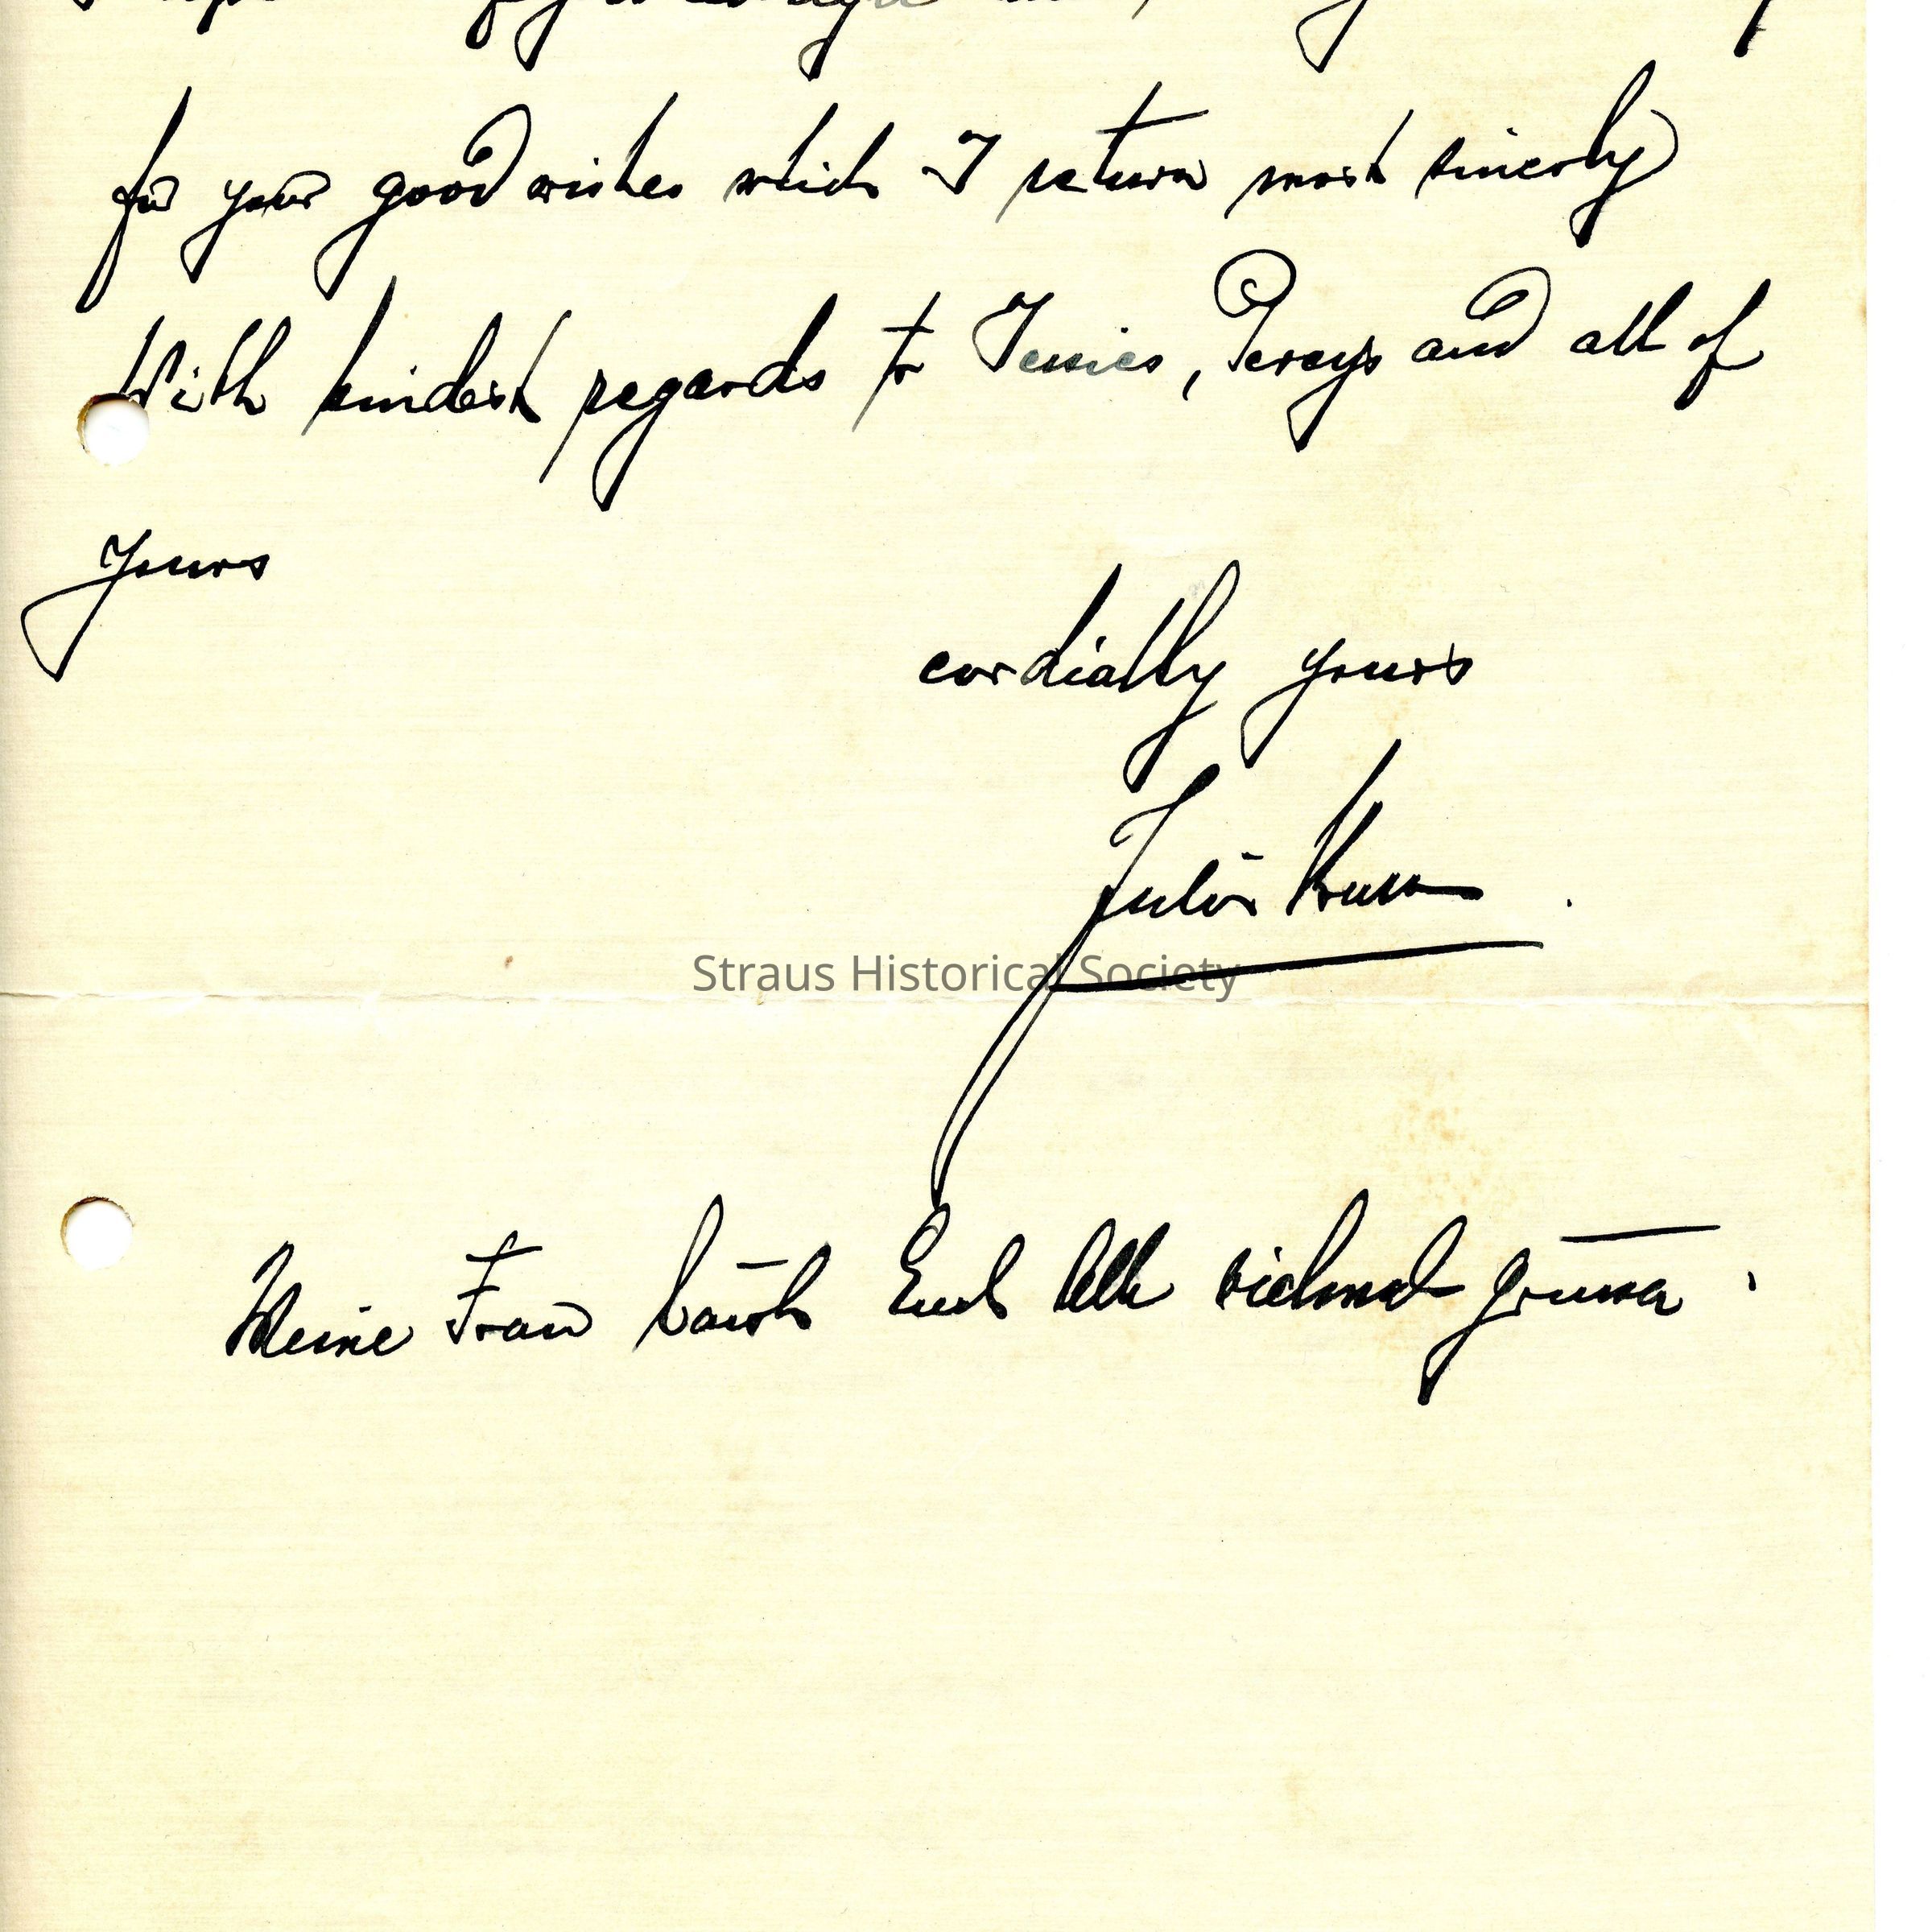 for your good wishes which I return most sincerly
With kindest regards to Jessies, Percys and all of
Yours
cordially yours
Julius
Straus Historical Society
Meine Frau lässt Euch Alle vielmal grüssen.